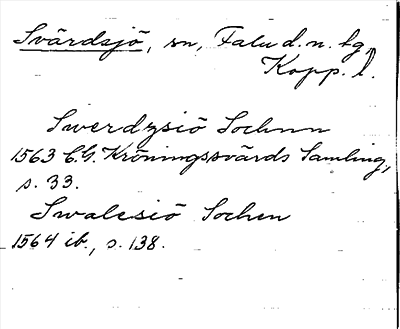 Svärdsjö, sn, Falu d. n. tg,
Kopp. l.
Swerdzsiö Sochnn
1563 C.G. Kröningssvärds Samling,
s. 33.
Swalesiö Sochen
1564 ib., s. 138.